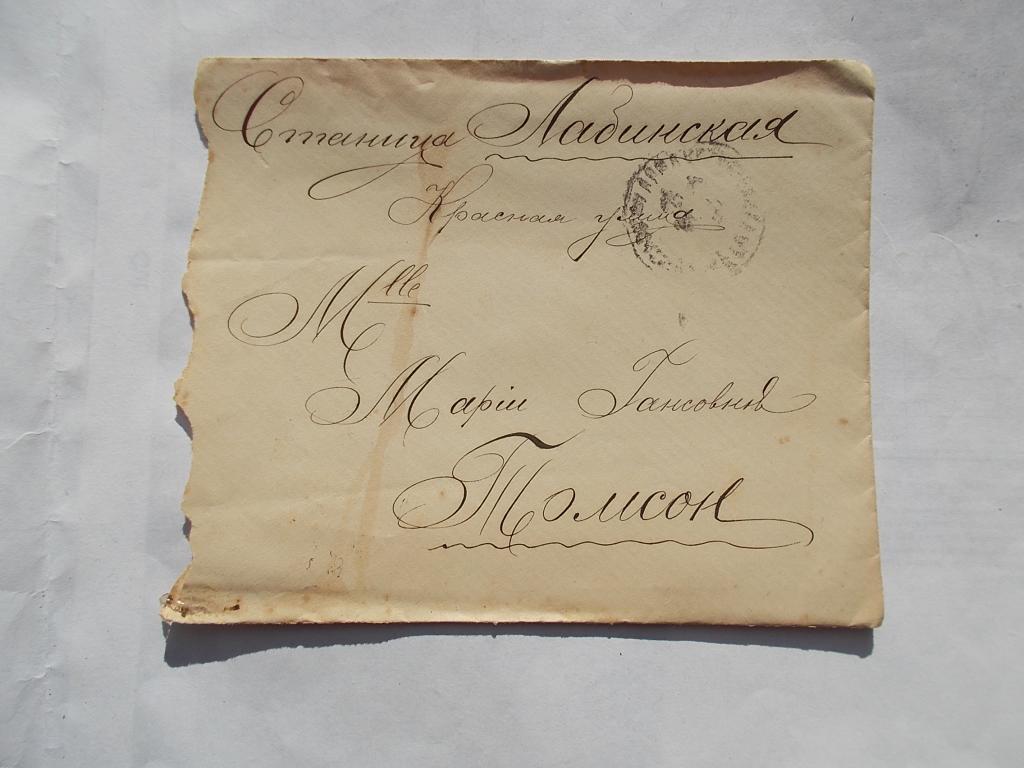 Станица Лабинская
Красная улица
Mlle
Маріи Гансовнѣ
Томсон